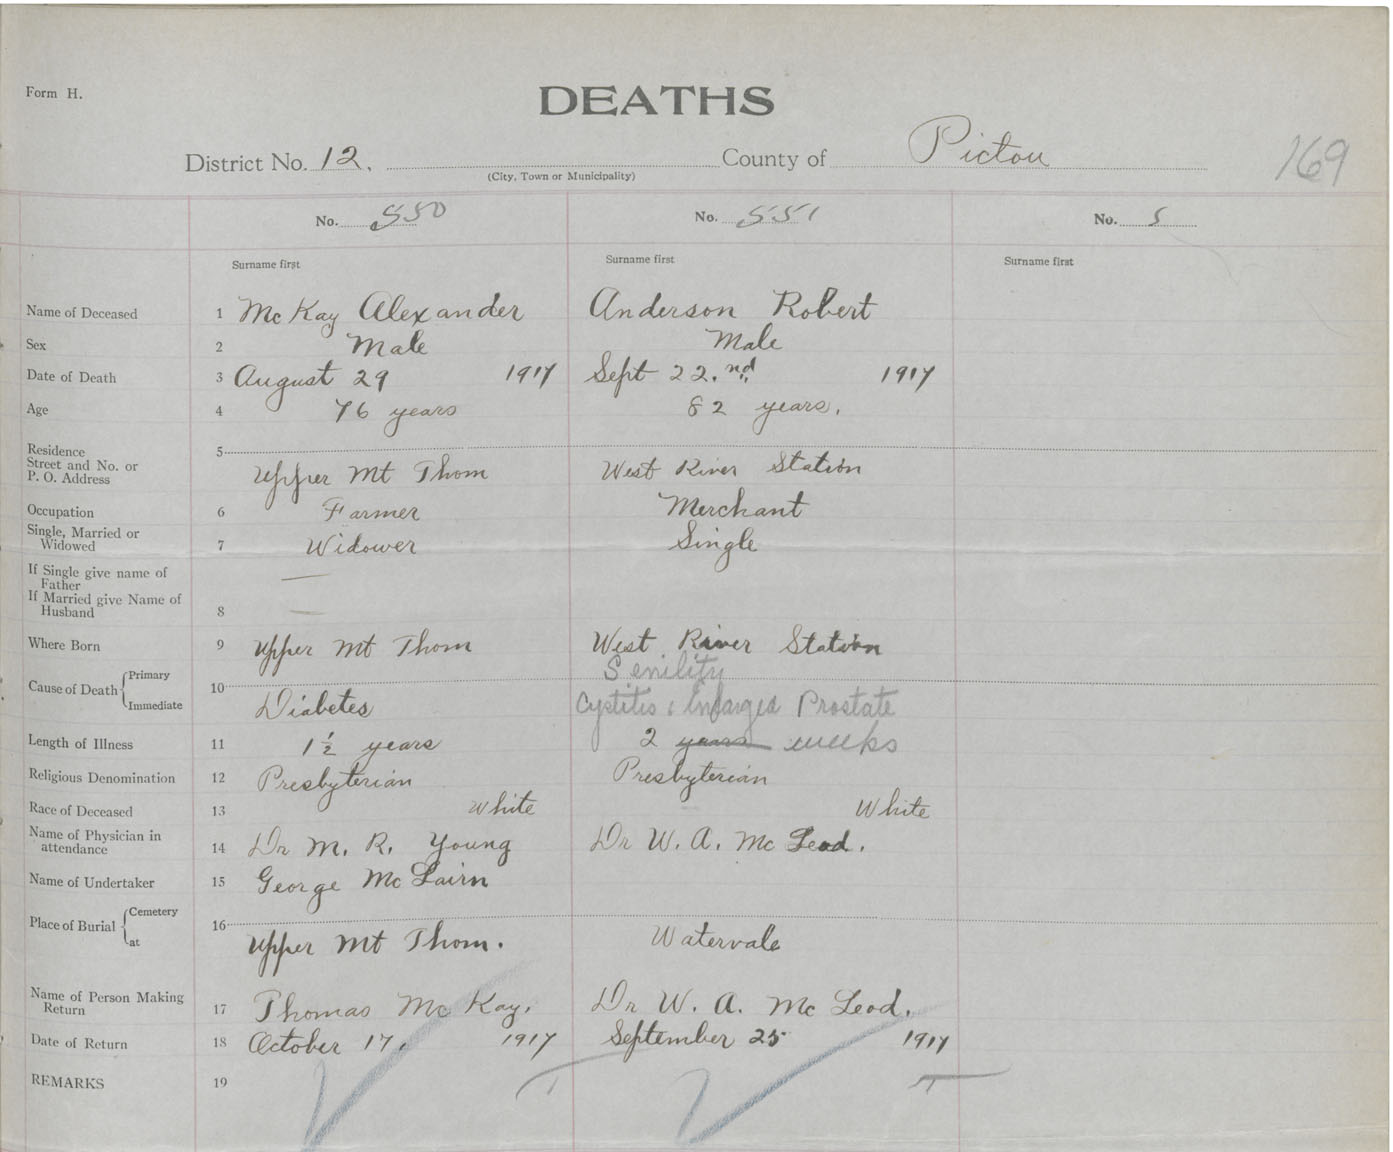 Form H.
DEATHS
District No. 12. County of Pictou
(City, Town or Municipality)
169
No. 550 No. 551 No. 5
Surname first Surname first Surname first
Name of Deceased 1 McKay Alexander Anderson Robert
Sex 2 Male Male
Date of Death 3 August 29 1917 Sept 22.nd 1917
Age 4 76 years 82 years.
Residence 5
Street and No. or
P. O. Address Upper Mt Thom West River Station
Occupation 6 Farmer Merchant
Single, Married or
Widowed 7 Widower Single
If Single give name of
Father —
If Married give Name of
Husband 8 —
Where Born 9 Upper Mt Thom West River Station
Senility
Cause of Death { Primary 10
Immediate Diabetes Cystitis & Enlarged Prostate
Length of Illness 11 1½ years 2 years weeks
Religious Denomination 12 Presbyterian Presbyterian
Race of Deceased 13 White White
Name of Physician in
attendance 14 Dr M. R. Young Dr W. A. McLeod.
Name of Undertaker 15 George McLairn
Place of Burial { Cemetery 16
at Upper Mt Thom. Watervale
Name of Person Making
Return 17 Thomas McKay. Dr W. A. McLeod.
Date of Return 18 October 17, 1917 September 25 1917
REMARKS 19